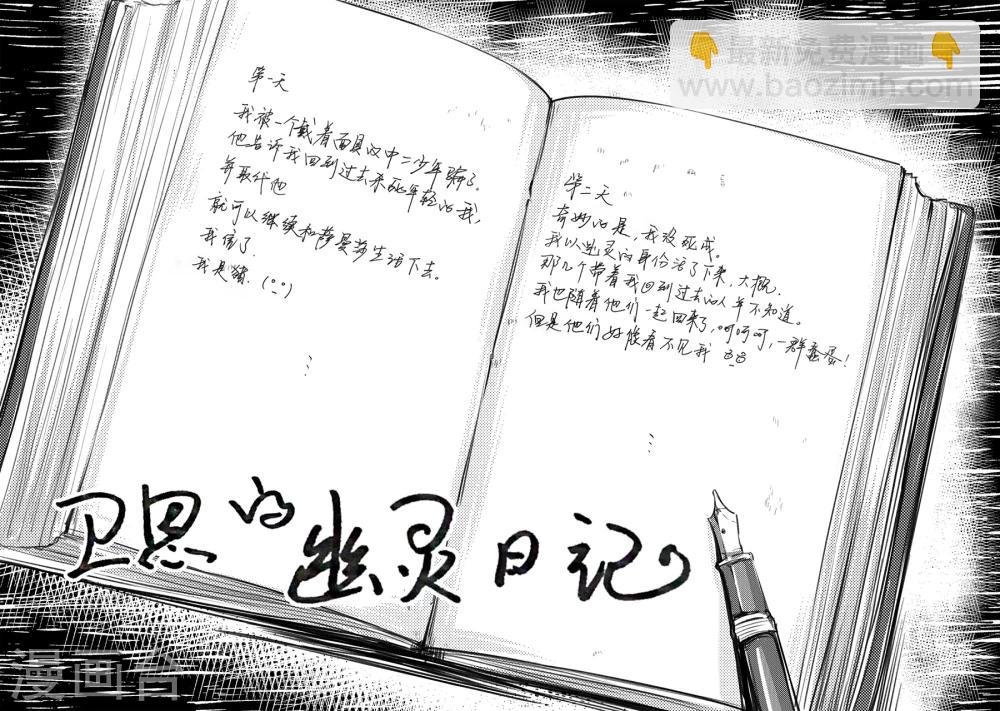 第一天
我被一个戴着面具的中二少年骗了。
他告诉我回到过去杀死年轻的我,
并取代他
就可以继续和萨曼莎生活下去。
我信了.
我是猪.
第二天
奇妙的是,我没死成。
我以幽灵的身份活了下来,大概.
那几个带着我回到过去的人并不知道。
我也随着他们一起回来了,呵呵呵,一群蠢蛋!
但是他们好像看不见我
卫思的幽灵日记
👇最新免费漫画👇
www.baozimh.com
漫画台